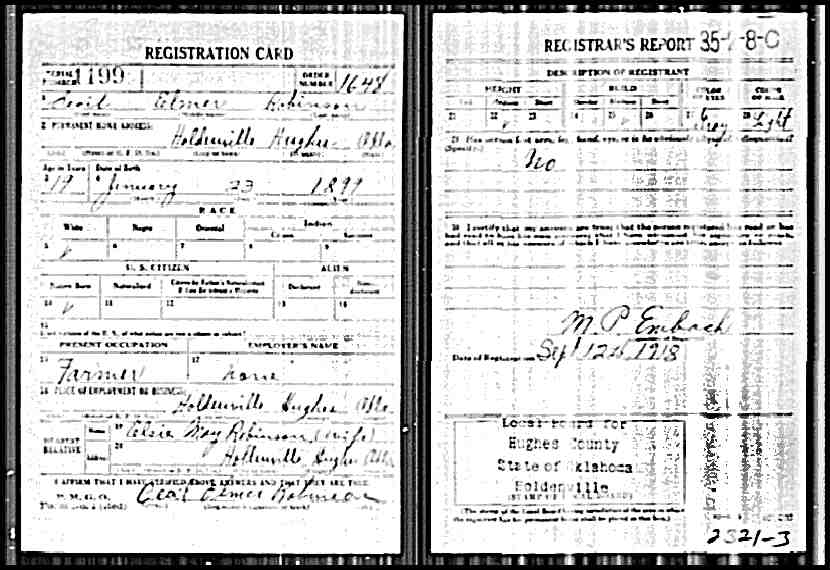 REGISTRATION CARD
SERIAL NUMBER 1199
ORDER NUMBER 1648
Cecil Elmer Robinson
2 PERMANENT HOME ADDRESS:
Holdenville Hughes Okla
Age in Years
Date of Birth
19 January 23 1899
RACE
White Negro Oriental Indian
5 6 7 8 9
U. S. CITIZEN ALIEN
Native Born Naturalized Citizen by Father's Naturalization Declarant
10 11 12 13 14
15
PRESENT OCCUPATION EMPLOYER'S NAME
16 17
Farmer none
18 PLACE OF EMPLOYMENT OR BUSINESS:
Holdenville Hughes Okla
NEAREST RELATIVE
Name 19 Elsie May Robinson (wife)
Address 20 Holdenville Hughes Okla
I AFFIRM THAT I HAVE VERIFIED ABOVE ANSWERS AND THAT THEY ARE TRUE
Cecil Elmer Robinson
REGISTRAR'S REPORT 35-
DESCRIPTION OF REGISTRANT
HEIGHT BUILD COLOR OF EYES COLOR OF HAIR
Tall Medium Short Slender Medium Stout
21 22 23 24 25 26 27 Grey 28 Light
29 Has person lost arm, leg, hand, eye, or is he obviously physically disqualified?
(Specify.)
No
30 I certify that my answers are true; that the person registered has read or has
had read to him his own answers; that I have witnessed his signature or mark,
and that all of his answers of which I have knowledge are true, except as follows:
M. P. Embach
Date of Registration Sept 12th 1918
Local Board for
Hughes County
State of Oklahoma
Holdenville
(STAMP OF LOCAL BOARD)
(The stamp of the Local Board having jurisdiction of the area in which
the registrant has his permanent home shall be placed in this box.)
2321-3